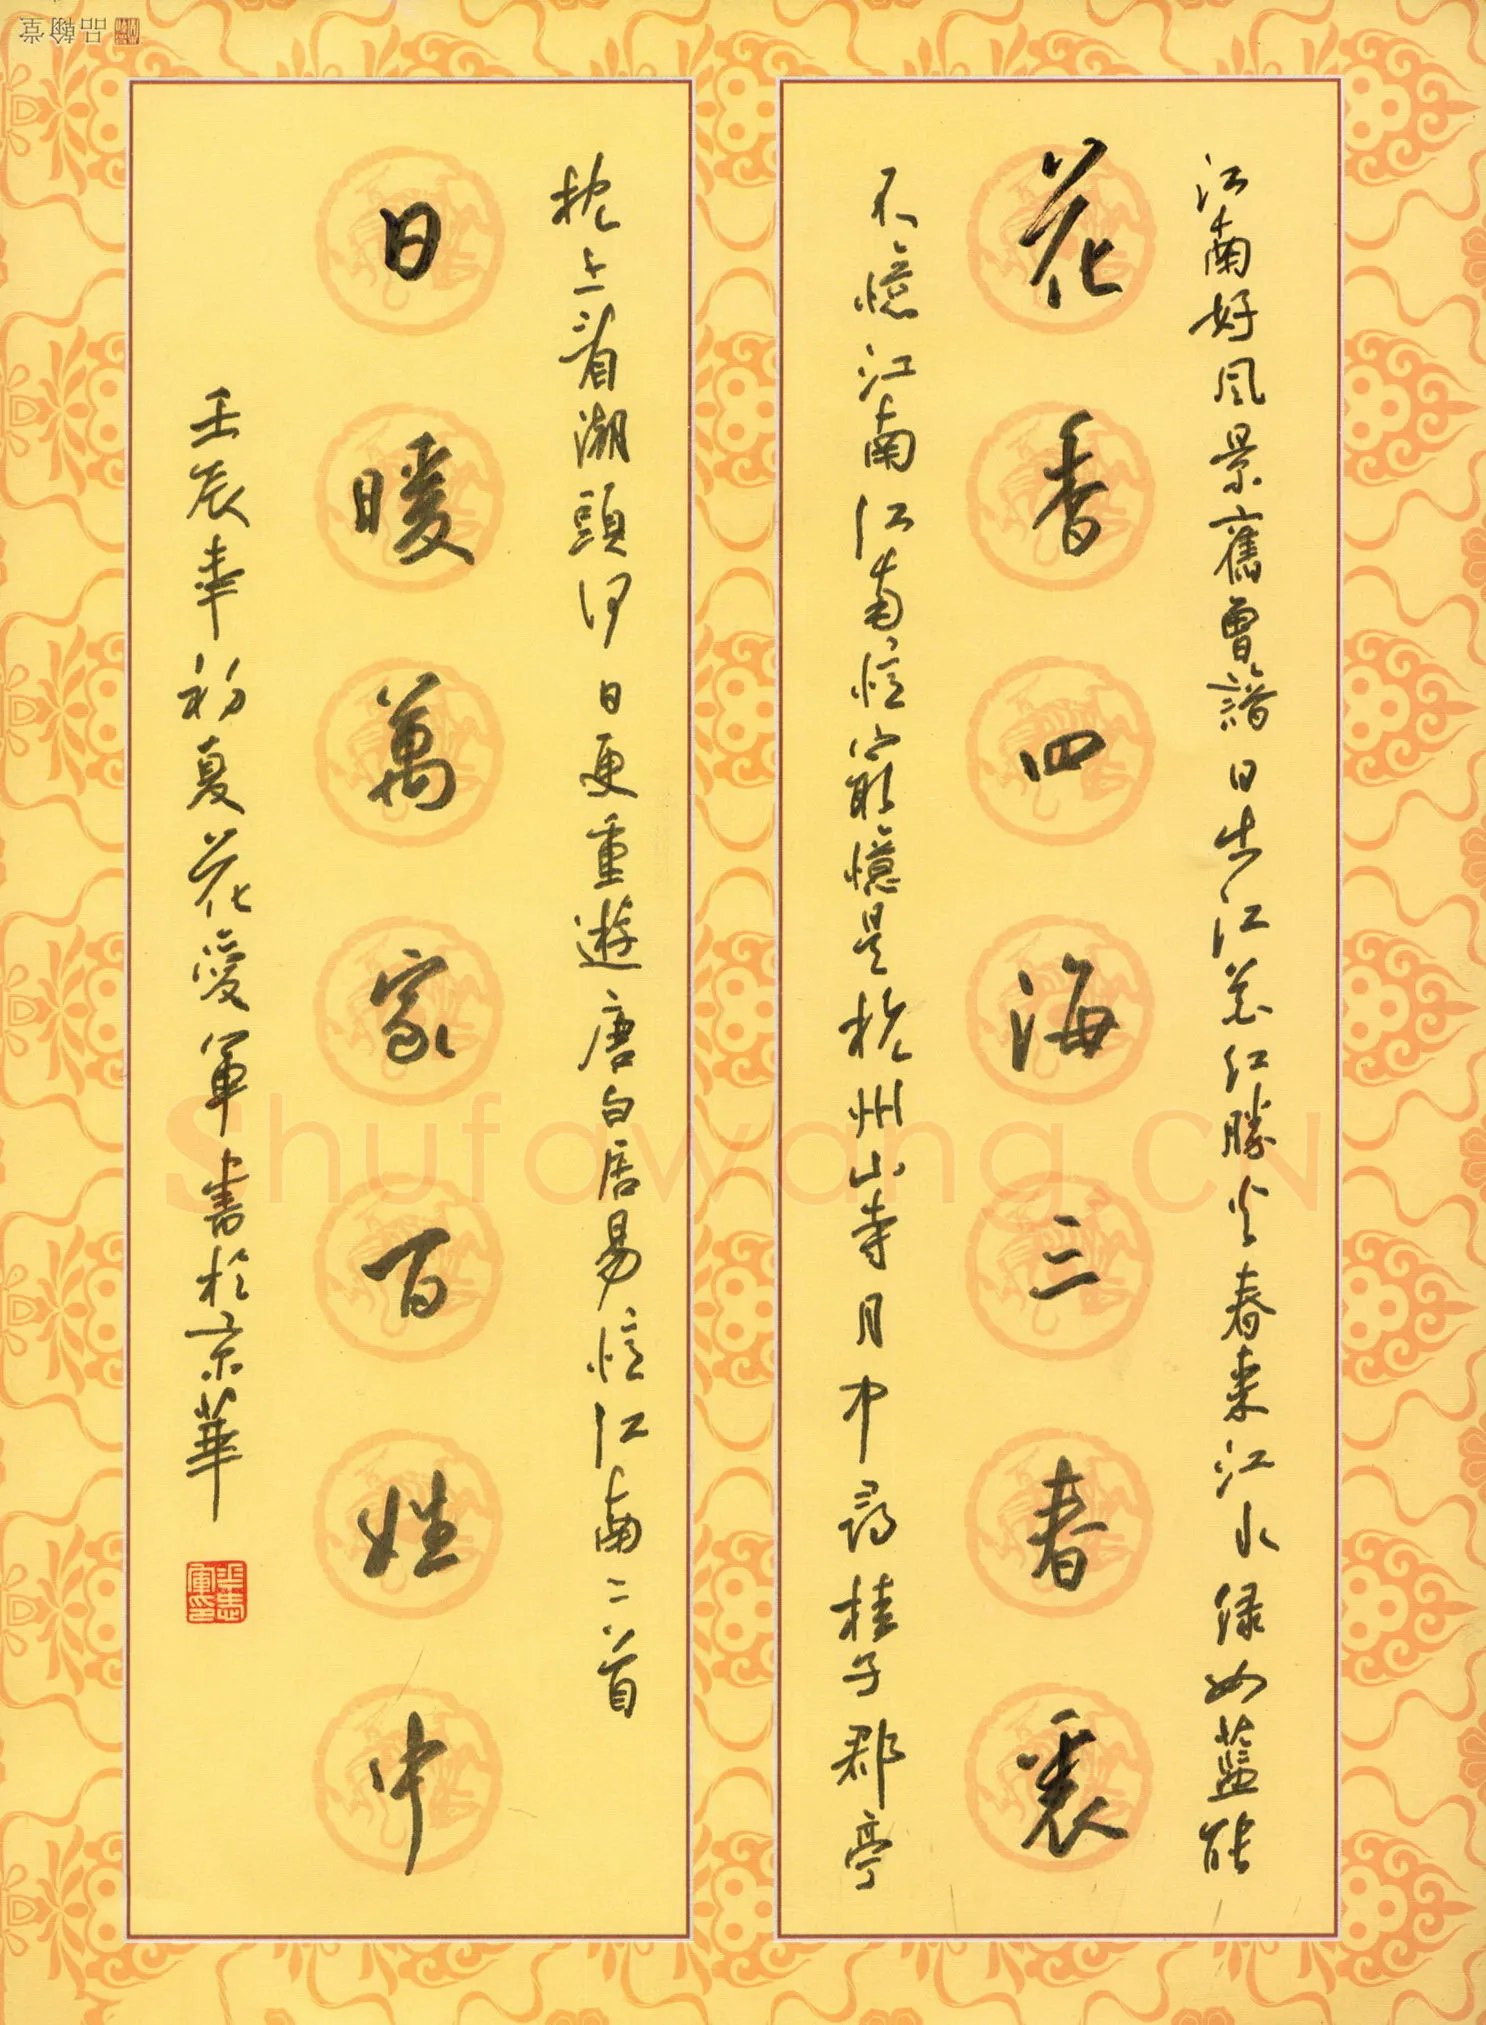 江南好风景舊曾諳日出江花红勝火春来江水绿如藍能
花香四海三春裏
不憶江南江南憶最憶是杭州山寺月中尋桂子郡亭
枕上看潮頭何日更重遊唐白居易憶江南二首
日暖萬家百姓中
壬辰年初夏花愛軍書於京華
品翰堂
Shufawang.CN